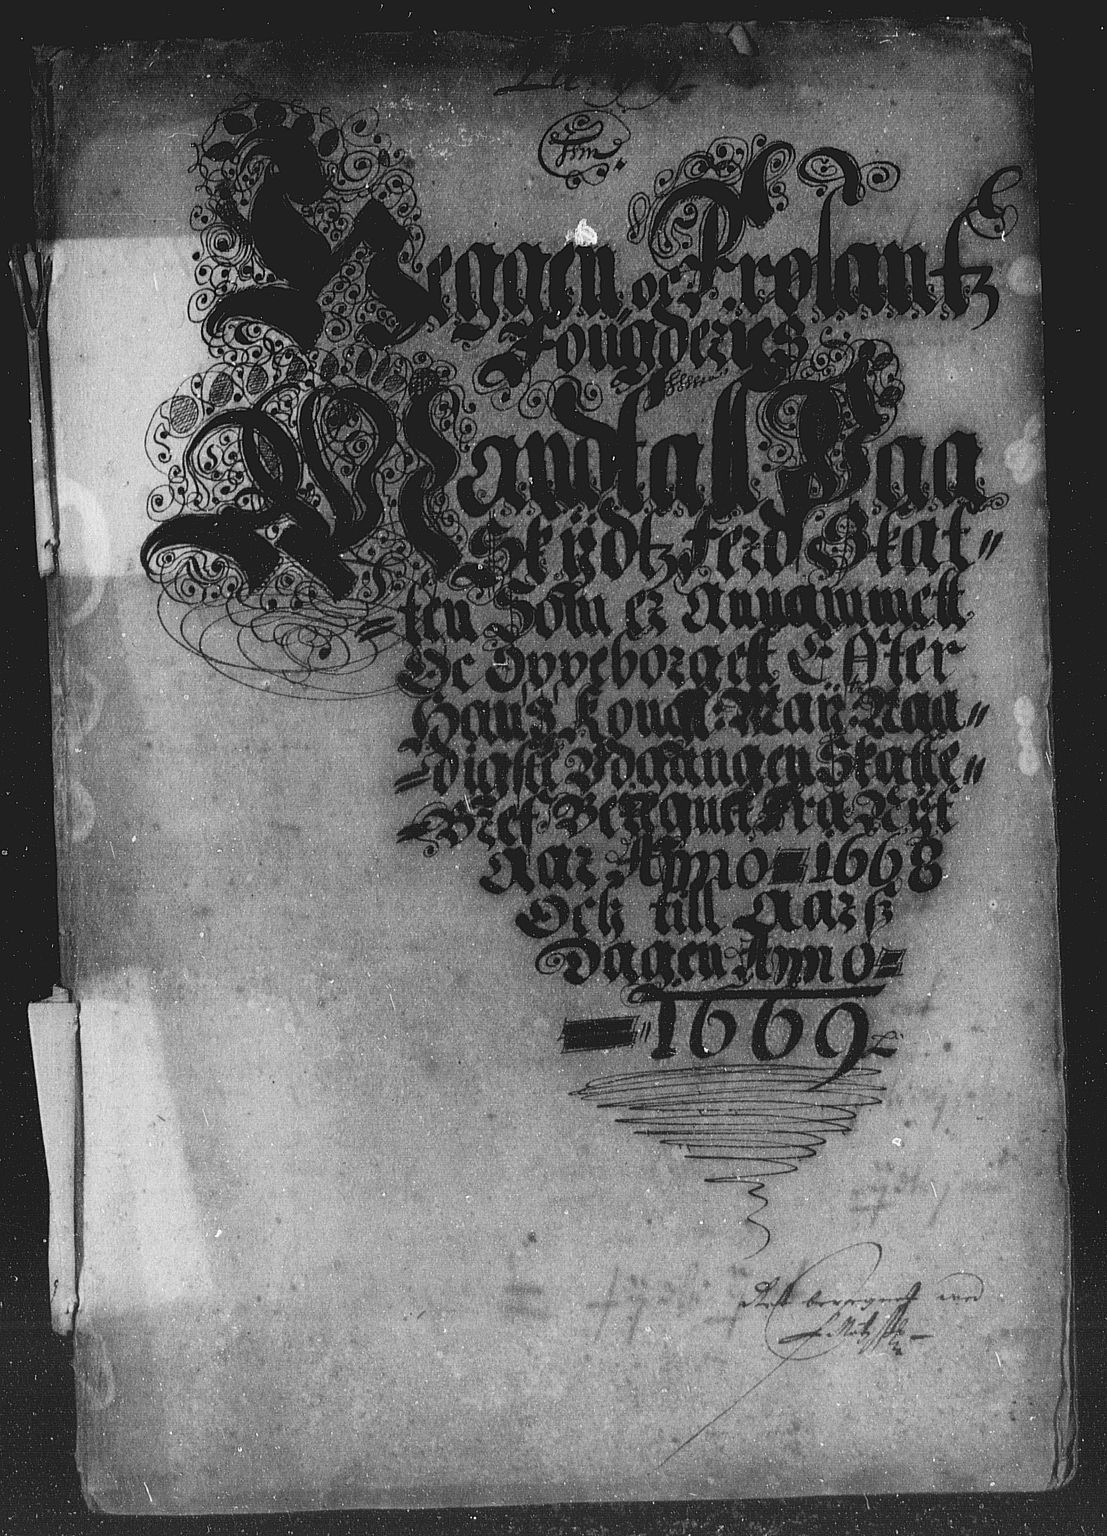 Neggen oc Frolantz
Fougderies
Mandtall Paa
Skÿdtzferd Skat=
=ten Som er Annammett
Oc Oppeborgett Effter
Hans Kongl: Maÿ: Naa=
=digste Udgangen Skatte=
=Bref Beregnet fra Nÿt
Aar Anno 1668
Och till Aarß
Dagen Anno
1669
beregnett